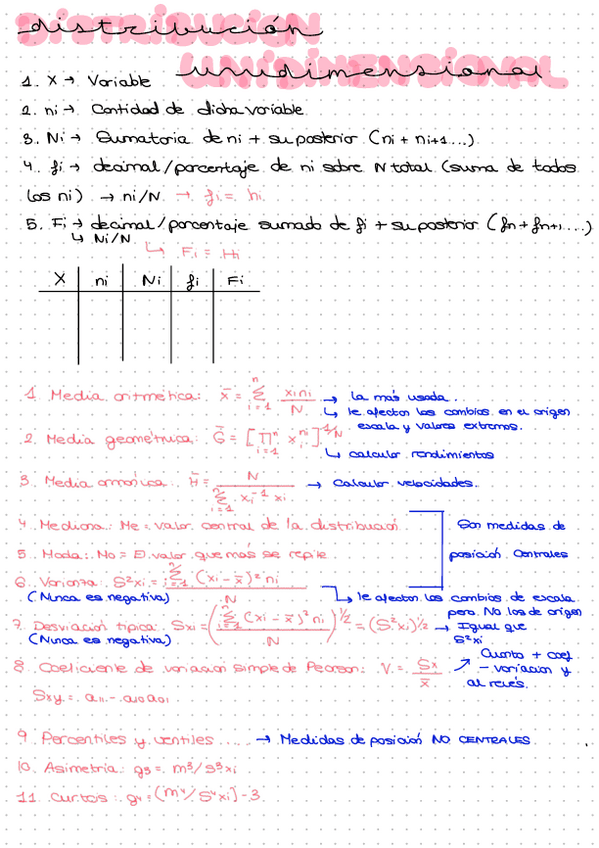 distribución
unidimensional
1. X → Variable
2. ni → Cantidad de dicha variable.
3. Ni → Sumatoria de ni + su posterior (ni + ni+1...)
4. fi → decimal/porcentaje de ni sobre N total (suma de todos
los ni) → ni/N → fi = hi
5. Fi → decimal/porcentaje sumado de fi + su posterior (fn + fn+1....)
↳ Ni/N
↳ Fi = Hi
X ni Ni fi Fi
1. Media aritmética: x̄ = Σⁿᵢ₌₁ xini / N → La más usada.
↳ le afectan los cambios en el origen
escala y valores extremos.
2. Media geométrica: Ḡ = [Πⁿᵢ₌₁ xᵢⁿⁱ]^1/N
↳ calcular rendimientos
3. Media armónica: H̄ = N / Σⁿᵢ₌₁ xi⁻¹ xi → Calcular velocidades.
4. Mediana: Me = valor central de la distribución
Son medidas de
5. Moda: Mo = El valor que más se repite
posición Centrales
6. Varianza: S²xi = Σⁿᵢ₌₁ (xi - x̄)² ni / N
(Nunca es negativa)
↳ le afectan los cambios de escala
pero No los de origen
7. Desviación típica: Sxi = (Σⁿᵢ₌₁ (xi - x̄)² ni / N)^1/2 = (S²xi)^1/2 → Igual que
(Nunca es negativa)
S²xi
8. Coeficiente de variación simple de Pearson: V = Sx / x̄
↗ Cuanto + coef
- variación y
al revés.
Sxy = a₁₁ - a₁₀a₀₁
9. Percentiles y ventiles..... → Medidas de posición NO CENTRALES.
10. Asimetría: g3 = m³/S³xi
11. Curtos: g4 = (m⁴/S⁴xi) - 3